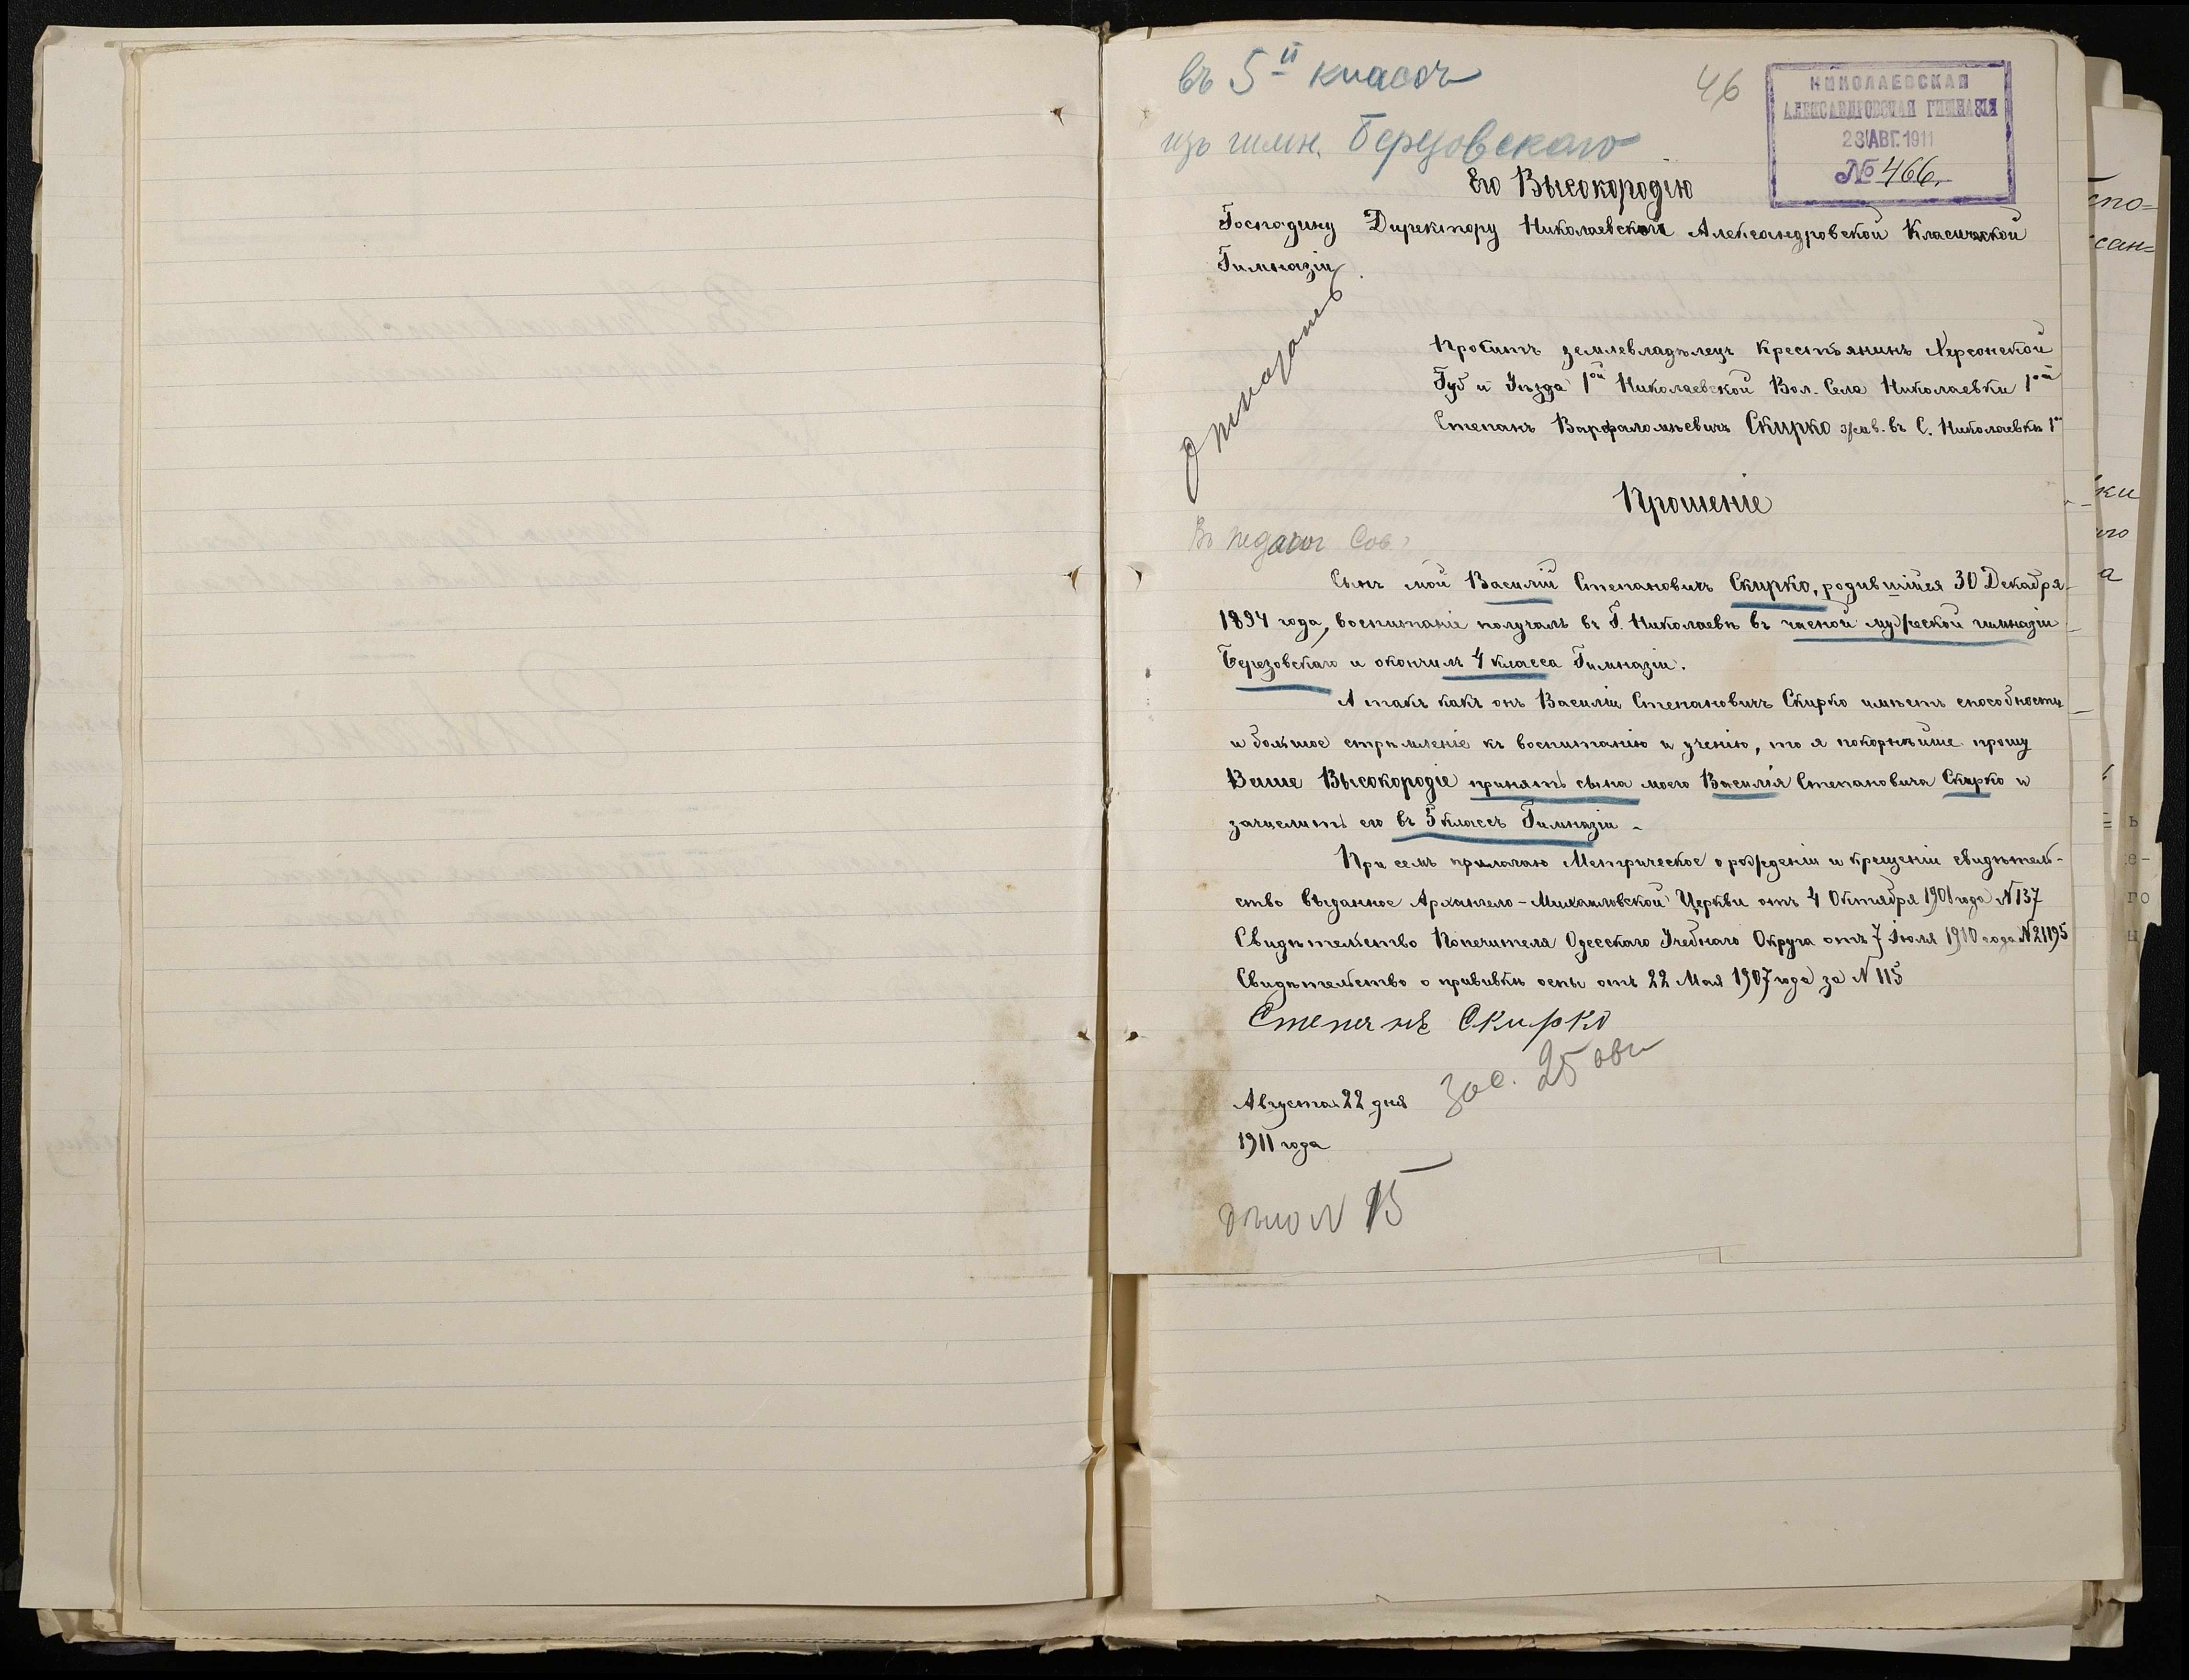 въ 5й классъ
46
изъ гимн. Березовскаго
НИКОЛАЕВСКАЯ
АЛЕКСАНДРОВСКАЯ ГИМНАЗІЯ
23 АВГ. 1911
№ 466.
Его Высокородію
Господину Директору Николаевской Александровской Класической
Гимназіи.
отказать
Проситъ землевладѣлецъ крестьянинъ Херсонской
Губ и Уѣзда 1ой Николаевской Вол. Села Николаевки 1ой
Степанъ Варфаломѣевичъ Скирко жив. въ С. Николаевкѣ 1ой
Прошеніе
Въ педагог Сов.
Сынъ мой Василій Степановичъ Скирко, родившійся 30 Декабря
1894 года, воспитаніе получалъ въ Г. Николаевѣ въ часной мужеской гимназіи
Березовскаго и окончилъ 4 класса Гимназіи.
А такъ какъ онъ Василій Степановичъ Скирко имѣетъ способности
и большое стрѣмленіе къ воспитанію и ученію, то я покорнѣише прошу
Ваше Высокородіе принять сына моего Василія Степановича Скирко и
зачислить его въ 5 классъ Гимназіи -
При семъ прилагаю Метрическое о рожденіи и крещеніи свидѣтель-
ство выданное Архангело-Михаиловской Церкви отъ 4 Октября 1901 года N 137
Свидѣтельство Попечителя Одесскаго Учебнаго Округа отъ 7 Іюля 1910 года N 21195
Свидѣтельство о прививкѣ оспы отъ 22 Мая 1907 года за N 115
Степанъ Скирко
Зас. 25 авг
Августа 22 дня
1911 года
дѣло N 15